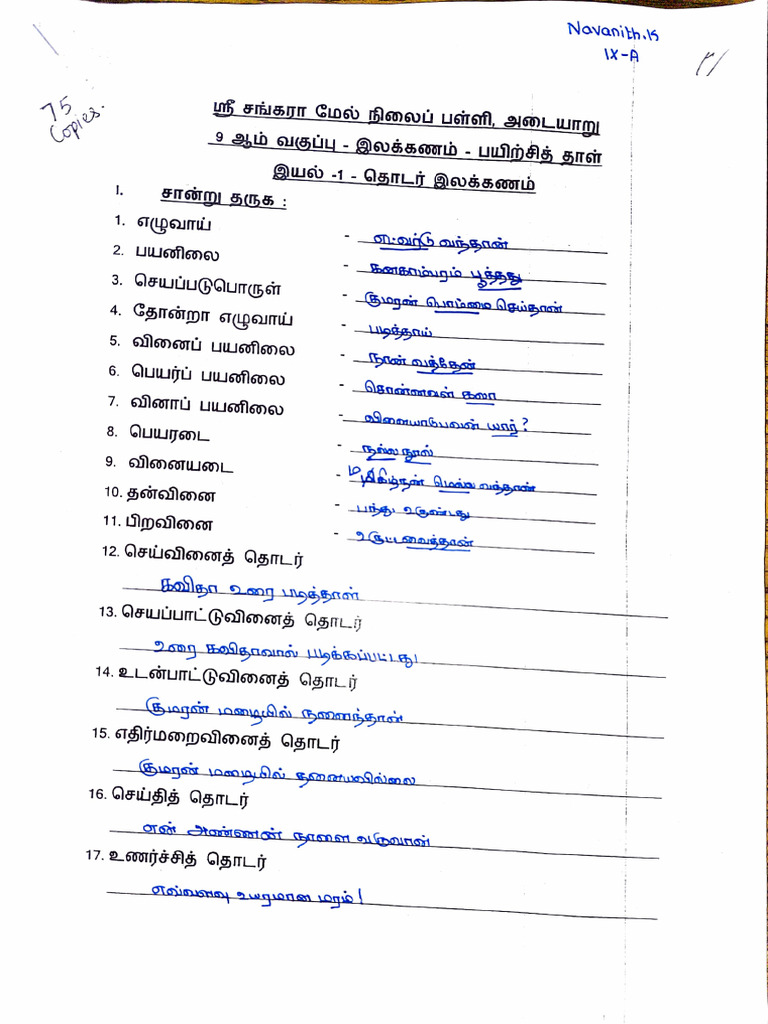 Navanith.K
IX-A
75
Copies.
ஸ்ரீ சங்கரா மேல் நிலைப் பள்ளி, அடையாறு
9 ஆம் வகுப்பு - இலக்கணம் - பயிற்சித் தாள்
இயல் -1 - தொடர் இலக்கணம்
I. சான்று தருக :
1. எழுவாய் - வந்தான்
2. பயனிலை - கனகாம்பரம் பூத்தது
3. செயப்படுபொருள் - குமரன் பொம்மை செய்தான்
4. தோன்றா எழுவாய் - படித்தாய்
5. வினைப் பயனிலை - நான் வந்தேன்
6. பெயர்ப் பயனிலை - சொன்னவள் கலா
7. வினாப் பயனிலை - விளையாடுபவன் யார்?
8. பெயரடை - நல்ல நூல்
9. வினையடை - மகிழ்நன் மெல்ல வந்தான்
10. தன்வினை - பந்து உருண்டது
11. பிறவினை - உருட்டவைத்தான்
12. செய்வினைத் தொடர்
கவிதா உரை படித்தாள்
13. செயப்பாட்டுவினைத் தொடர்
உரை கவிதாவால் படிக்கப்பட்டது
14. உடன்பாட்டுவினைத் தொடர்
குமரன் மழையில் நனைந்தான்
15. எதிர்மறைவினைத் தொடர்
குமரன் மழையில் நனையவில்லை
16. செய்தித் தொடர்
என் அண்ணன் நாளை வருவான்
17. உணர்ச்சித் தொடர்
எவ்வளவு உயரமான மரம்!